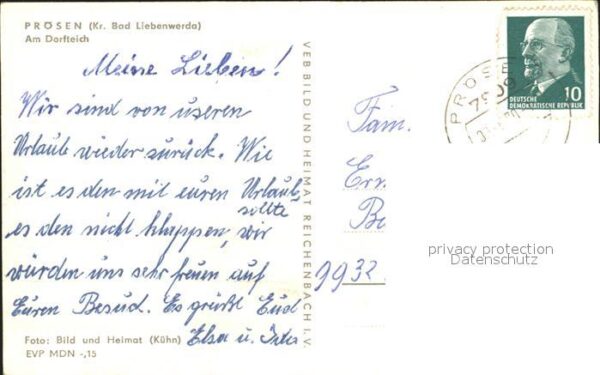 PRÖSEN (Kr. Bad Liebenwerda)
Am Dorfteich
Meine Lieben!
Wir sind von unseren
Urlaub wieder zurück. Wie
ist es den mit euren Urlaub,
sollte
es den nicht klappen, wir
würden uns sehr freuen auf
Euren Besuch. Es grüßt Euch
Elsa u.
Foto: Bild und Heimat (Kühn)
EVP MDN -,15
VEB BILD UND HEIMAT REICHENBACH I. V.
Fam.
9932
PRÖSEN
7909
10
DEUTSCHE
DEMOKRATISCHE REPUBLIK
privacy protection
Datenschutz